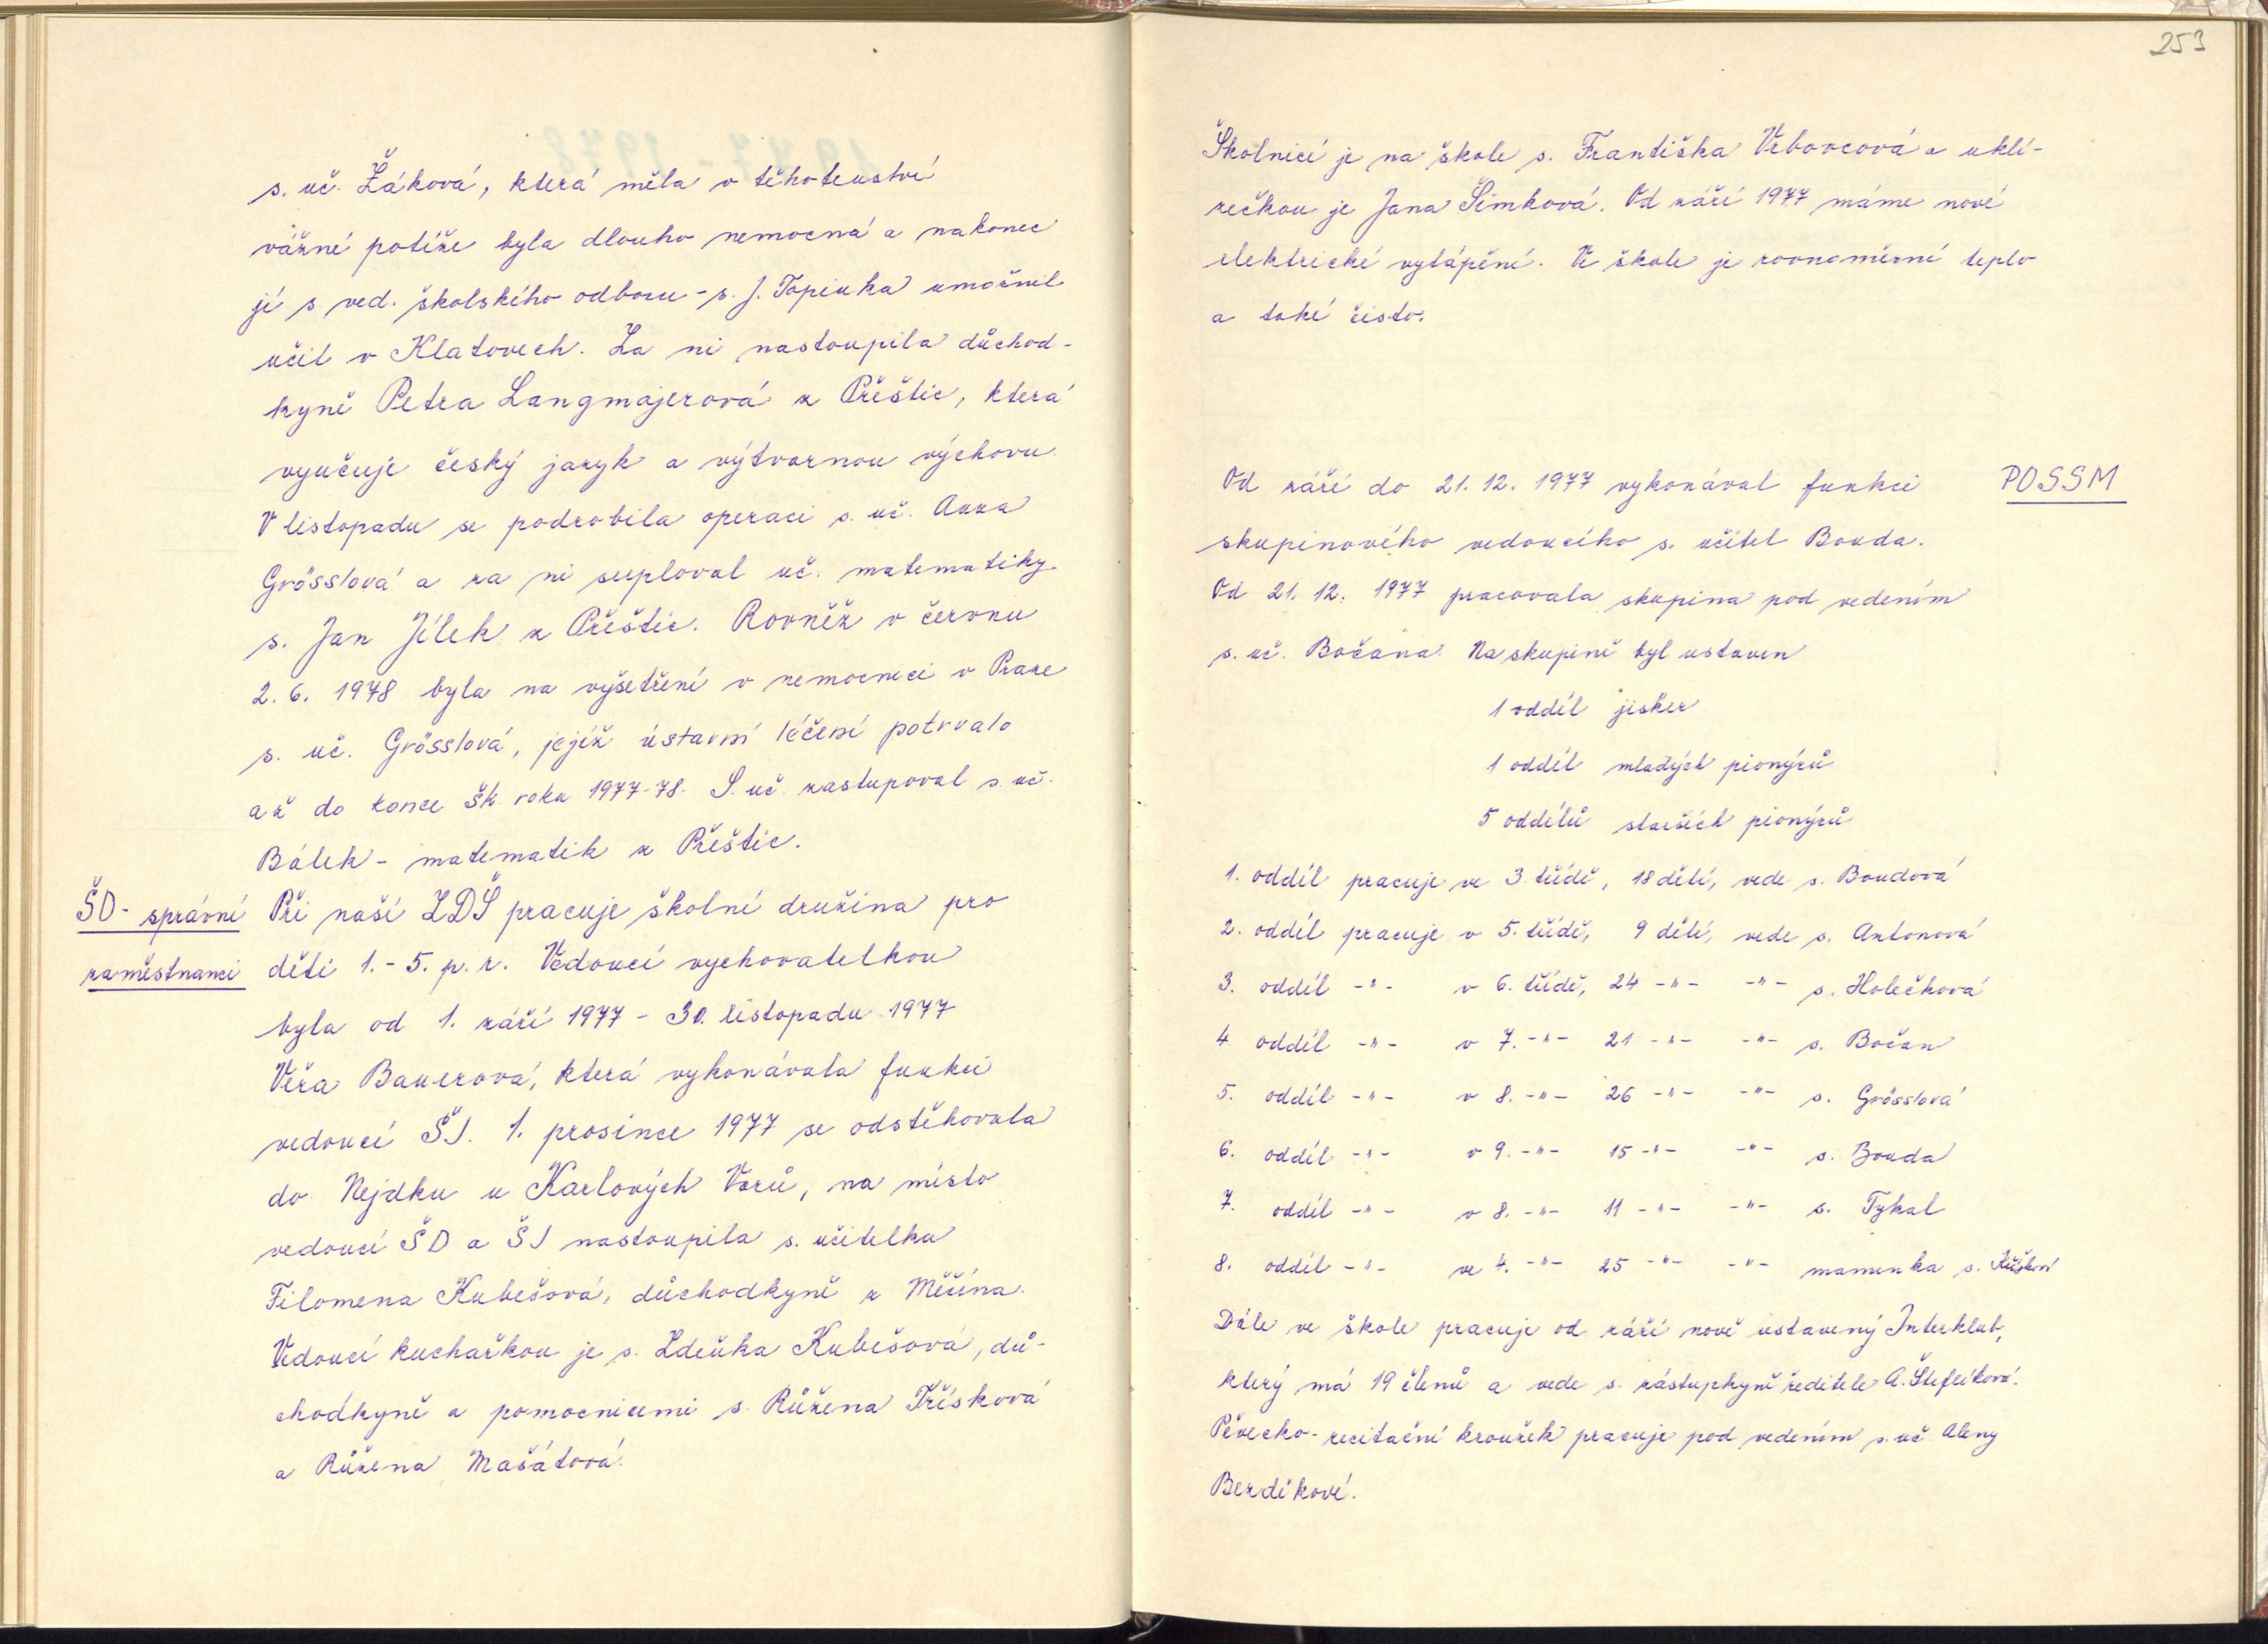 s. uč. Žáková, která měla v těhotenství
vážné potíže byla dlouho nemocná a nakonec
jí s. ved. školského odboru - s. J. Topinka umožnil
učit v Klatovech. Za ni nastoupila důchod-
kyně Petra Langmajerová z Přeštic, která
vyučuje český jazyk a výtvarnou výchovu.
V listopadu se podrobila operaci s. uč. Anna
Grösslová a za ni suploval uč. matematiky
s. Jan Jílek z Přeštic. Rovněž v červnu
2. 6. 1978 byla na vyšetření v nemocnici v Praze
s. uč. Grösslová, jejíž ústavní léčení potrvalo
až do konce šk. roku 1977-78. S. uč. zastupoval s. uč.
Bálek - matematik z Přeštic.
ŠD - správní
zaměstnanci
Při naší ZDŠ pracuje školní družina pro
děti 1. - 5. p. r. Vedoucí vychovatelkou
byla od 1. září 1977 - 30. listopadu 1977
Věra Bauerová, která vykonávala funkci
vedoucí ŠJ. 1. prosince 1977 se odstěhovala
do Nejdku u Karlových Varů, na místo
vedoucí ŠD a ŠJ nastoupila s. učitelka
Filomena Kubešová, důchodkyně z Měčína.
Vedoucí kuchařkou je s. Zdeňka Kubešová, dů-
chodkyně a pomocnicemi s. Růžena Třísková
a Růžena Mašátová.
253
Školnicí je na škole s. Františka Vrbovcová a uklí-
zečkou je Jana Šimková. Od září 1977 máme nové
elektrické vytápění. Ve škole je rovnoměrné teplo
a také čisto.
POSSM
Od září do 21. 12. 1977 vykonával funkci
skupinového vedoucího s. učitel Bouda.
Od 21. 12. 1977 pracovala skupina pod vedením
s. uč. Bočana. Na skupině byl ustaven
1 oddíl jisker
1 oddíl mladých pionýrů
5 oddílů starších pionýrů
1. oddíl pracuje ve 3. třídě, 18 dětí, vede s. Boudová
2. oddíl pracuje v 5. třídě, 9 dětí, vede s. Antonová
3. oddíl -"- v 6. třídě, 24 -"- -"- s. Holečková
4 oddíl -"- v 7. -"- 21 -"- -"- s. Bočan
5. oddíl -"- v 8. -"- 26 -"- -"- s. Grösslová
6. oddíl -"- v 9. -"- 15 -"- -"- s. Bouda
7. oddíl -"- v 8. -"- 11 -"- -"- s. Tykal
8. oddíl -"- ve 4. -"- 25 -"- -"- maminka s.
Dále ve škole pracuje od září nově ustavený Interklub,
který má 19 členů a vede s. zástupkyně ředitele A. Šteflíková.
Pěvecko-recitační kroužek pracuje pod vedením s. uč. Aleny
Bezdíkové.